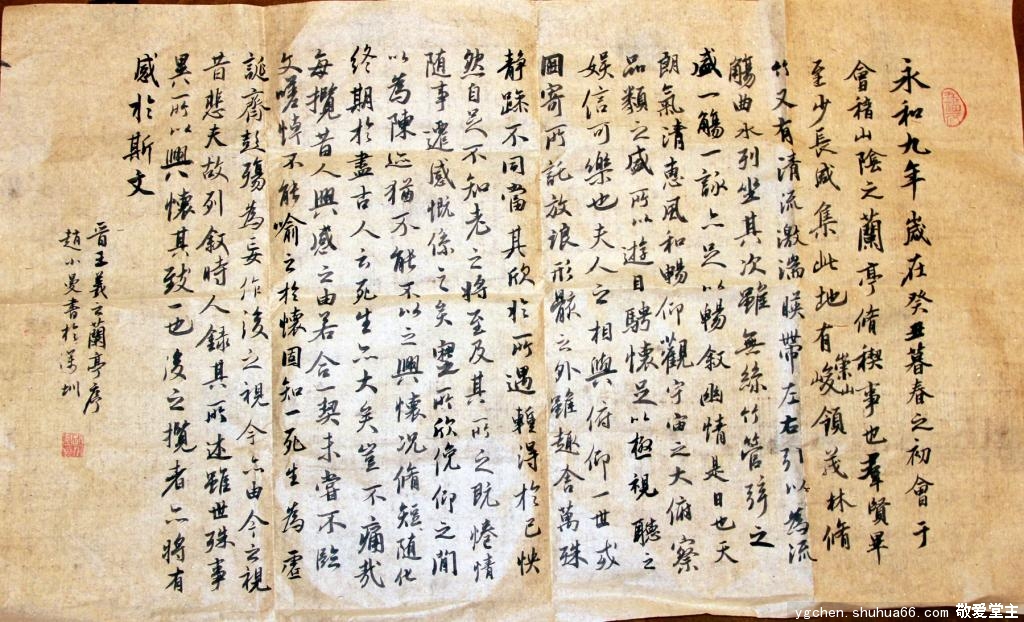 永和九年歲在癸丑暮春之初會于
會稽山陰之蘭亭脩稧事也羣賢畢
至少長咸集此地有崇山峻領茂林脩
竹又有清流激湍暎帶左右引以為流
觴曲水列坐其次雖無絲竹管弦之
盛一觴一詠亦足以暢敘幽情是日也天
朗氣清惠風和暢仰觀宇宙之大俯察
品類之盛所以遊目騁懷足以極視聽之
娛信可樂也夫人之相與俯仰一世或
因寄所託放浪形骸之外雖趣舍萬殊
静躁不同當其欣於所遇暫得於己怏
然自足不知老之將至及其所之既惓情
随事遷感慨係之矣向之所欣俛仰之閒
以為陳迹猶不能不以之興懷況脩短随化
終期於盡古人云死生亦大矣豈不痛哉
每攬昔人興感之由若合一契未嘗不臨
文嗟悼不能喻之於懷固知一死生為虛
誕齊彭殤為妄作後之視今亦由今之視
昔悲夫故列敘時人錄其所述雖世殊事
異所以興懷其致一也後之攬者亦將有
感於斯文
晋王羲之蘭亭序
趙小曼書於深圳
ygchen.shuhua66.com 敬爱堂主